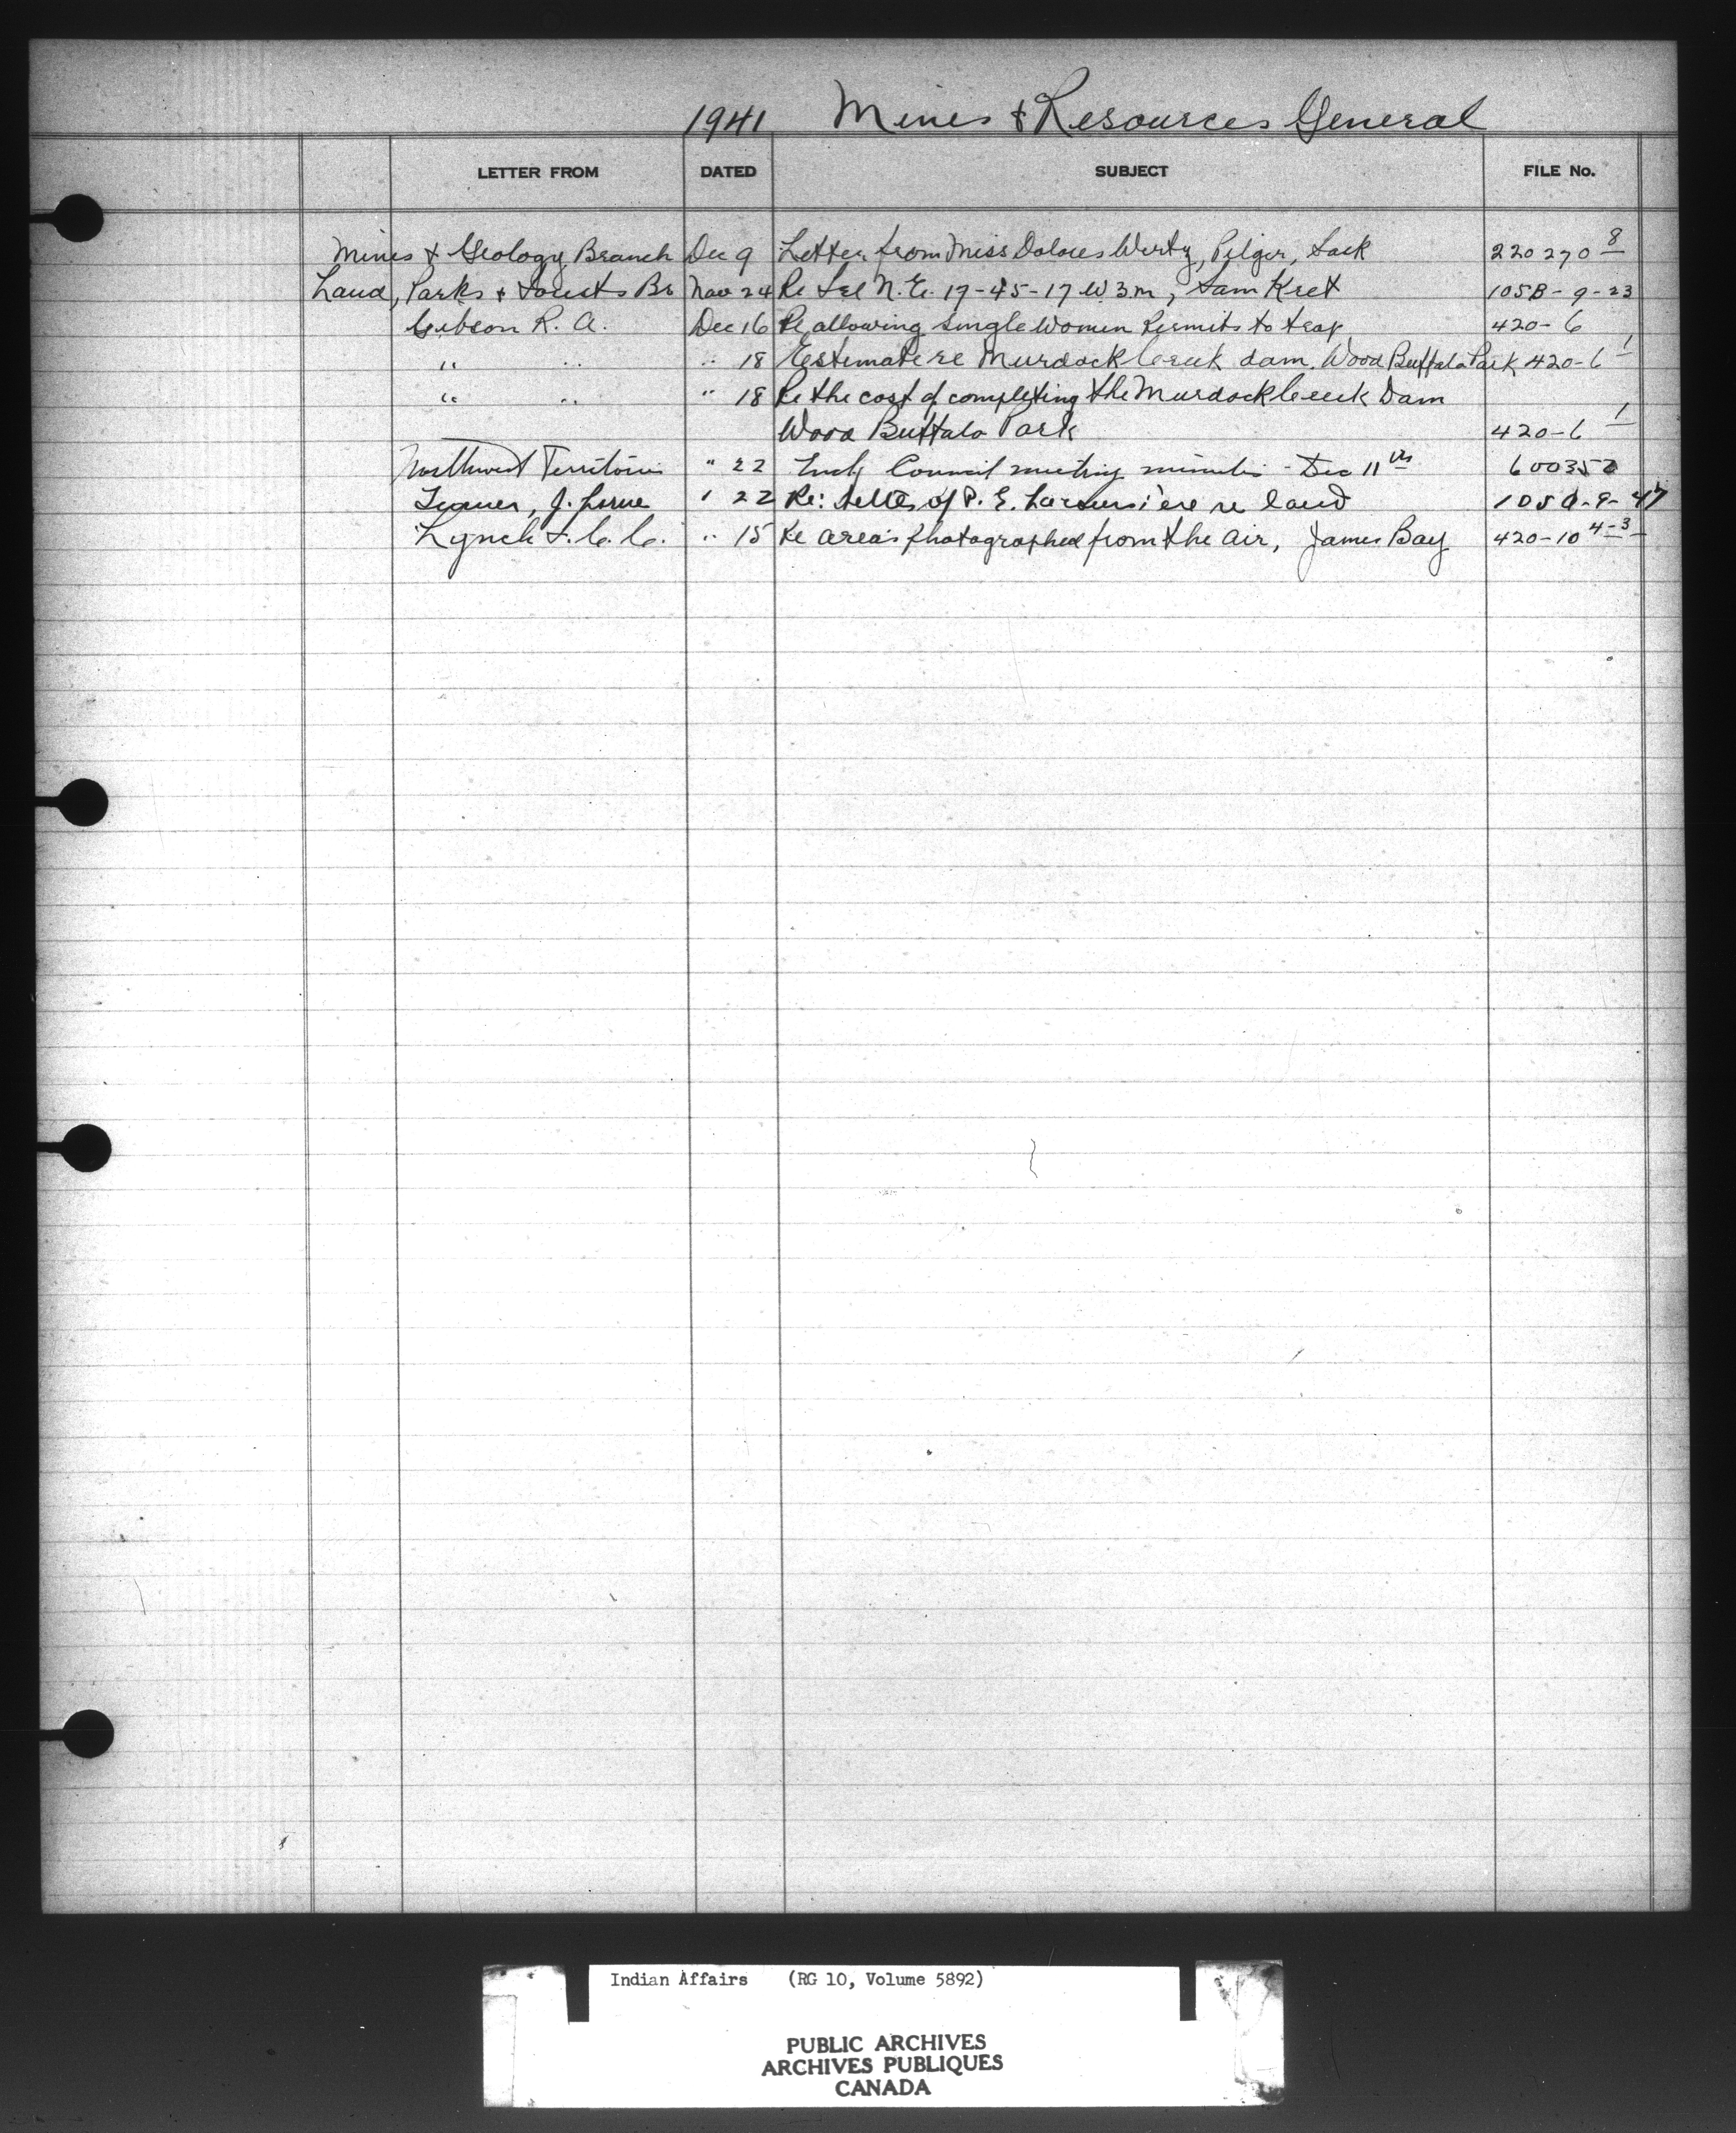 1941 Mines & Resources General
LETTER FROM DATED SUBJECT FILE No.
Mines & Geology Branch Dec 9 Letter from Miss Dolores Wirtz, Pilger, Sask 220270 8
Land, Parks & Forests Br Nov 24 Re N.E. 19-45-17 W3m, Sam Kret 105B-9-23
Gibson R. A. Dec 16 Re allowing single women permits to trap 420-6
" " " 18 Estimate re Murdock Creek dam. Wood Buffalo Park 420-6 1
" " " 18 Re the cost of completing the Murdock Creek Dam
Wood Buffalo Park 420-6 1
Northwest Territories " 22 Council meeting minutes - Dec 11th 600352
Turner, J. Lorne " 22 Re: letter of P. E. re land 105A-9-47
Lynch F. C. C. " 15 Re areas photographed from the air, James Bay 420-10 4-3
Indian Affairs (RG 10, Volume 5892)
PUBLIC ARCHIVES
ARCHIVES PUBLIQUES
CANADA